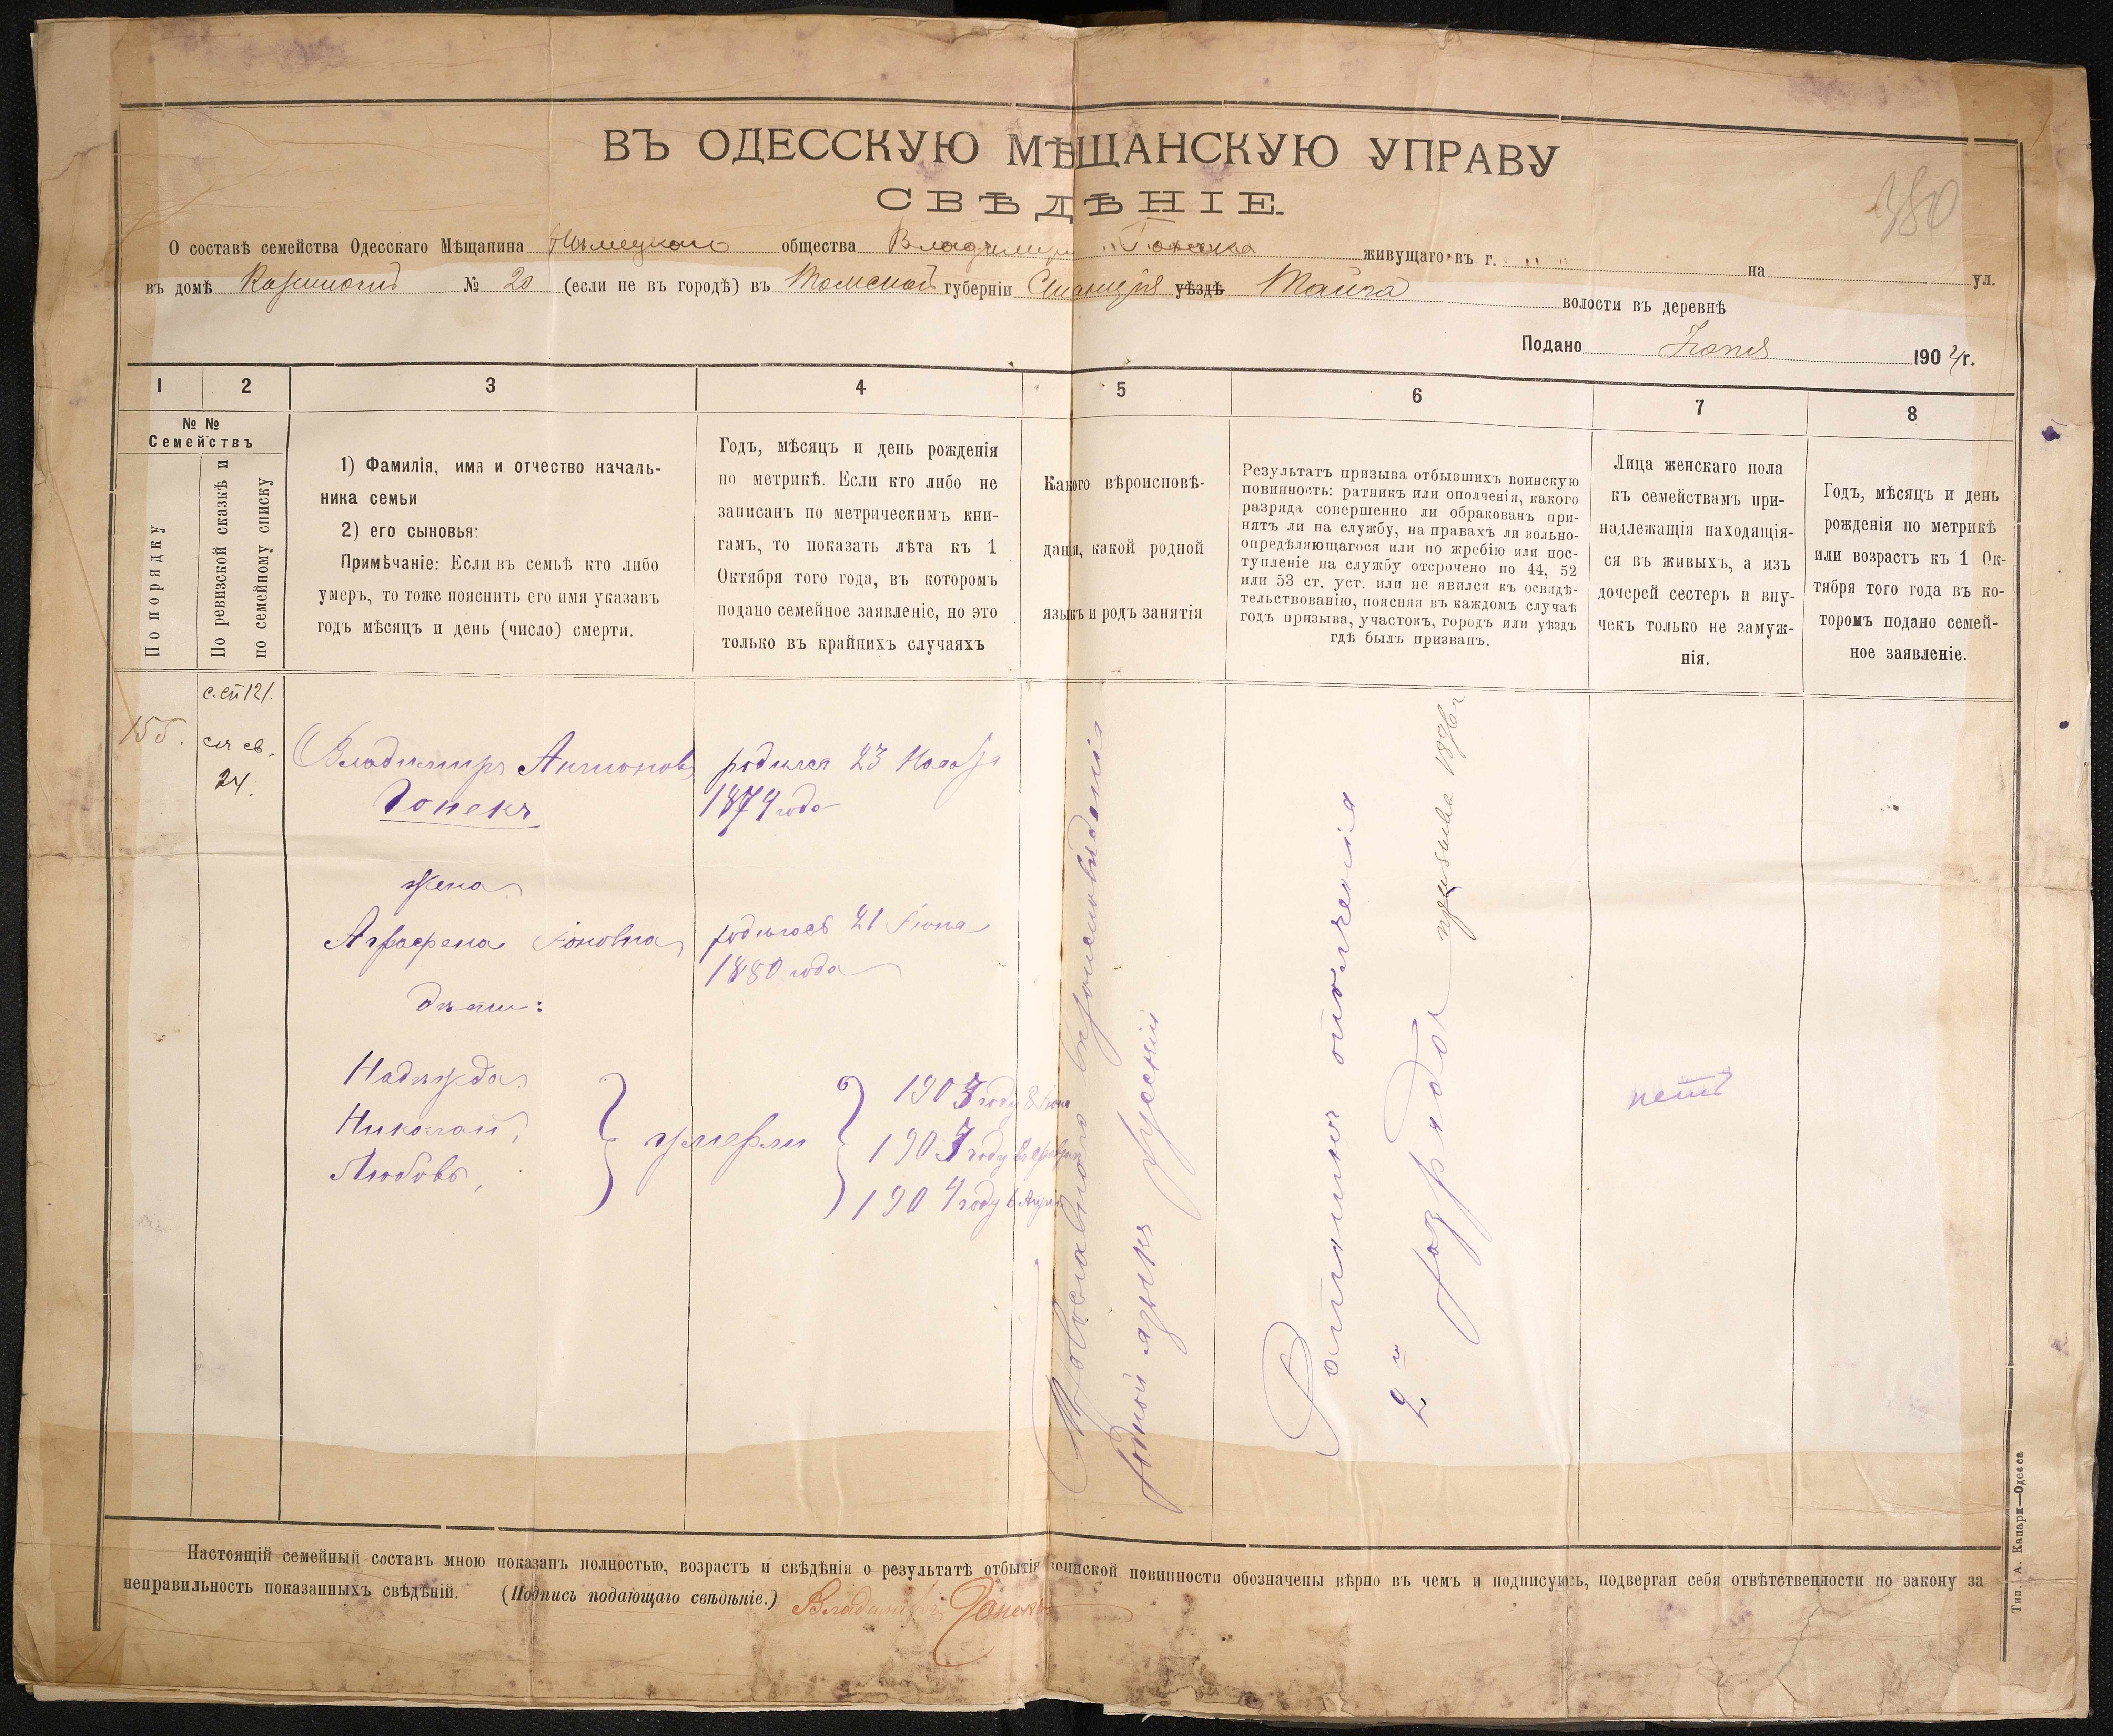 ВЪ ОДЕССКУЮ МѢЩАНСКУЮ УПРАВУ
СВѢДѢНІЕ.
380
О составѣ семейства Одесскаго Мѣщанина Нѣмецкаго общества Владимира Гонека живущаго въ г. на ул.
въ домѣ № 20 (если не въ городѣ) въ Томской губерніи Станція уѣздѣ Тайга волости въ деревнѣ
Подано 1904 г.
1 2 3 4 5 6 7 8
№ №
Семействъ
По порядку
По ревизской сказкѣ и
по семейному списку
1) Фамилія, имя и отчество началь-
ника семьи
2) его сыновья:
Примѣчаніе: Если въ семьѣ кто либо
умеръ, то тоже пояснить его имя указавъ
годъ мѣсяцъ и день (число) смерти.
Годъ, мѣсяцъ и день рожденія
по метрикѣ. Если кто либо не
записанъ по метрическимъ кни-
гамъ, то показать лѣта къ 1
Октября того года, въ которомъ
подано семейное заявленіе, но это
только въ крайнихъ случаяхъ
Какого вѣроисповѣ-
данія, какой родной
языкъ и родъ занятія
Результатъ призыва отбывшихъ воинскую
повинность: ратникъ или ополченія, какого
разряда совершенно ли обракованъ при-
нятъ ли на службу, на правахъ ли вольно-
опредѣляющагося или по жребію или пос-
тупленіе на службу отсрочено по 44, 52
или 53 ст. уст. или не явился къ освидѣ-
тельствованію, поясняя въ каждомъ случаѣ
годъ призыва, участокъ, городъ или уѣздъ
гдѣ былъ призванъ.
Лица женскаго пола
къ семействамъ при-
надлежащія находящія-
ся въ живыхъ, а изъ
дочерей сестеръ и вну-
чекъ только не замуж-
нія.
Годъ, мѣсяцъ и день
рожденія по метрикѣ
или возрастъ къ 1 Ок-
тября того года въ ко-
торомъ подано семей-
ное заявленіе.
155.
с. сп 121.
24.
Владимиръ Антоновъ
Гонекъ
родился 23 Ноября
1874 года
жена
Аграфена Іоновна
родилась 21 Іюня
1880 года
дѣти:
Надежда
Николай,
Любовь,
умерли
1903 году 8 Іюня
1903 году
1904 году 6 Апрѣля
Православнаго вѣроисповѣданія
родной языкъ русскій
Ратникъ ополченія
2й разрядъ призыва
нетъ
Настоящій семейный составъ мною показанъ полностью, возрастъ и свѣдѣнія о результатѣ отбытія воинской повинности обозначены вѣрно въ чемъ и подписуюсь, подвергая себя отвѣтственности по закону за
неправильность показанныхъ свѣдѣній. (Подпись подающаго свѣдѣніе.) Владимиръ Гонекъ
Тип. А. Капари—Одесса